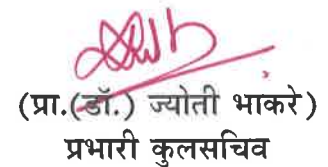 (प्रा.(डॉ.) ज्योती भाकरे)
प्रभारी कुलसचिव